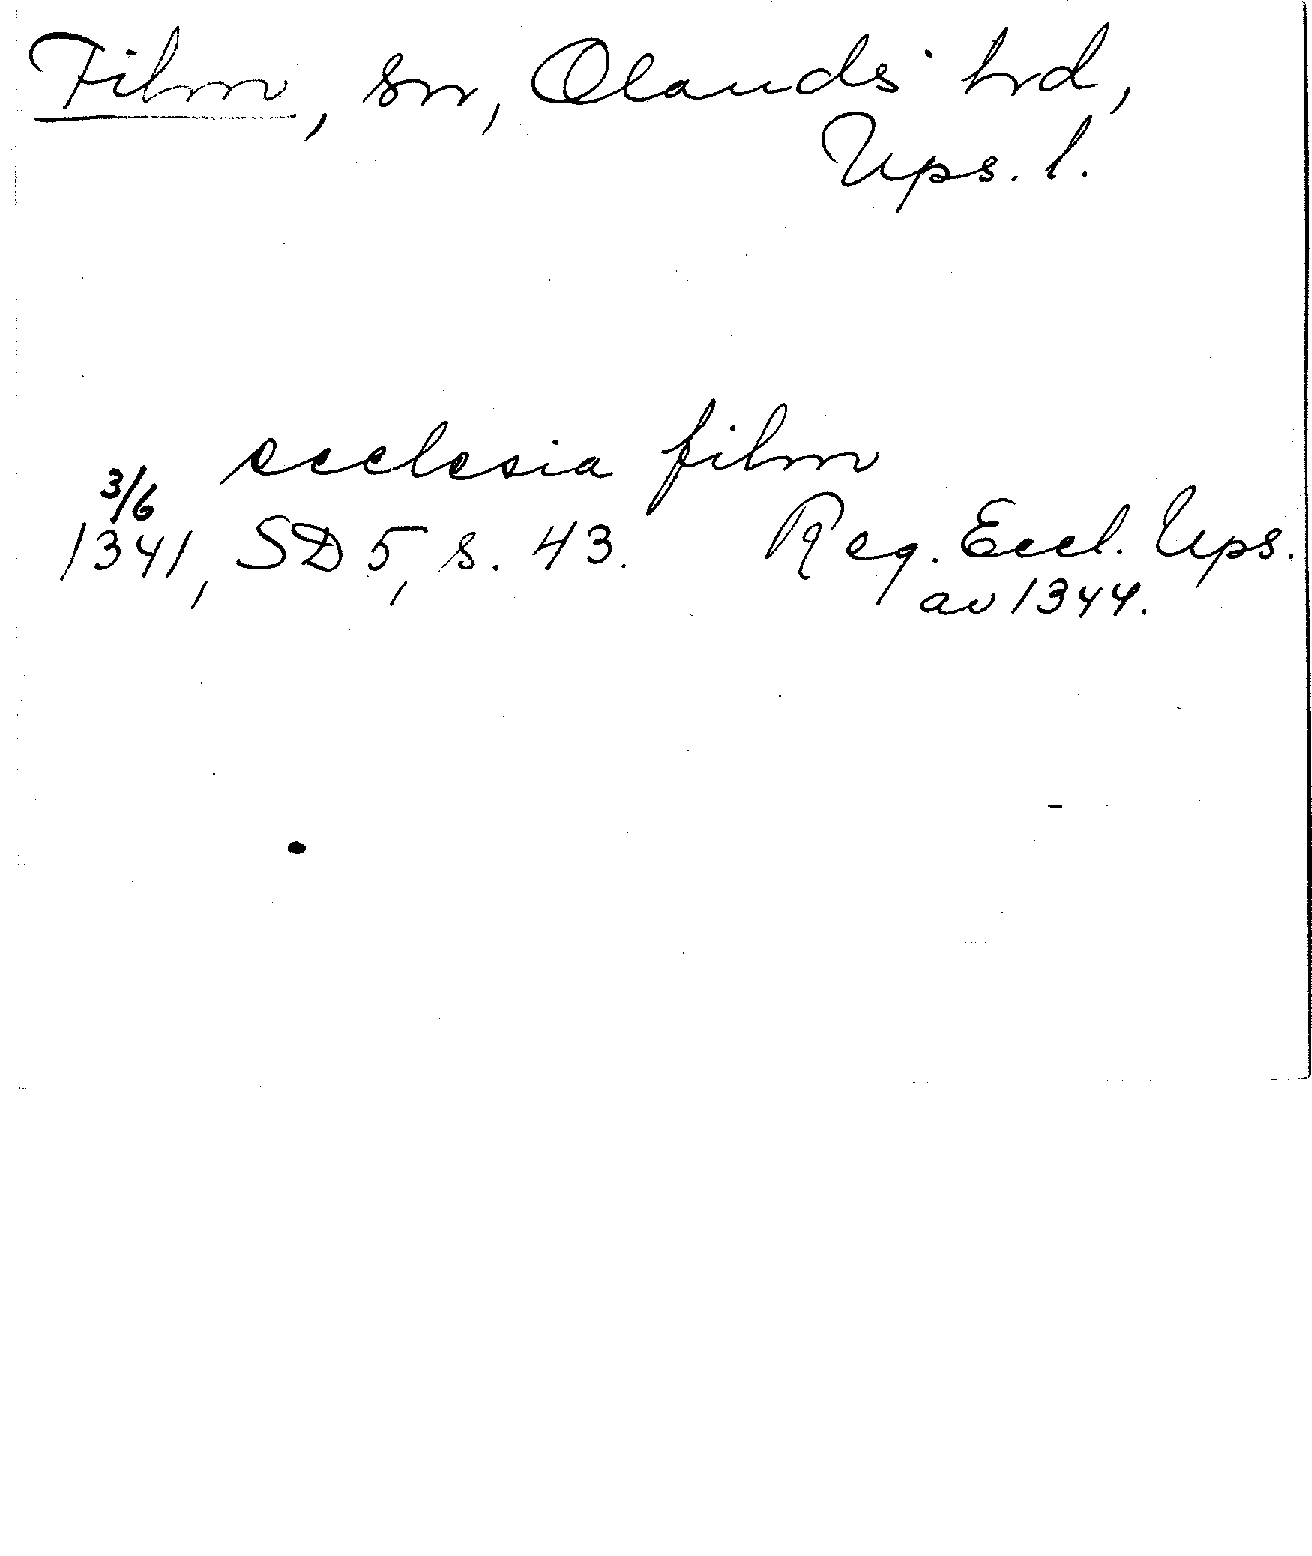 Film, sn, Olands hrd,
Ups. l.
ecclesia film
3/6
1341, SD 5, s. 43. Reg. Eccl. Ups.
av 1344.